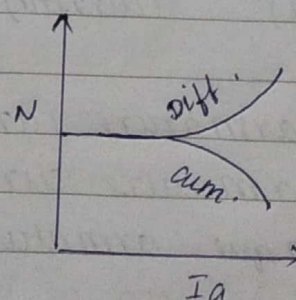 Diff.
N
Cum.
Ia